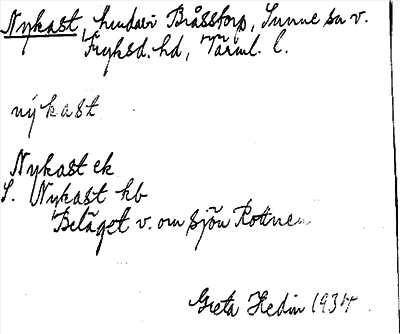 Nykast, hmdäri Bråsstorp, Sunne sn v.
Fryksd. hd, Värml. l.
nýkast
Nykast ek
S. Nykast hb
Beläget v. om sjön Rottnen
Greta Hedin 1934